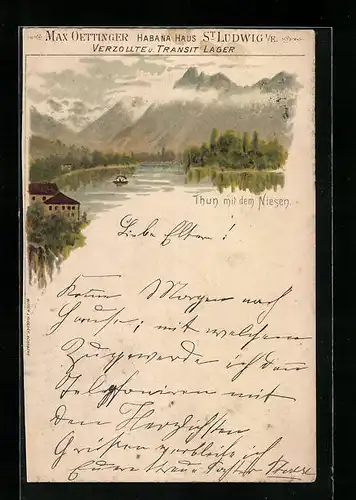 MAX OETTINGER HABANA HAUS ST LUDWIG i/E.
VERZOLLTE U. TRANSIT LAGER
Thun mit dem Niesen.
Liebe Eltern!
Komme Morgen nach
Hause; mit welchem
Zuge werde ich dann
Telefoniren mit
den Herzlichsten
Grüssen verbleibe ich
Max